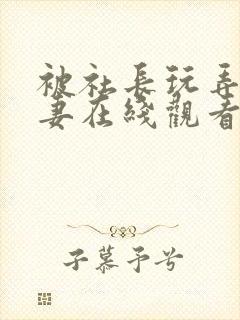 被社長玩弄
妻在綫觀看
子慕予兮